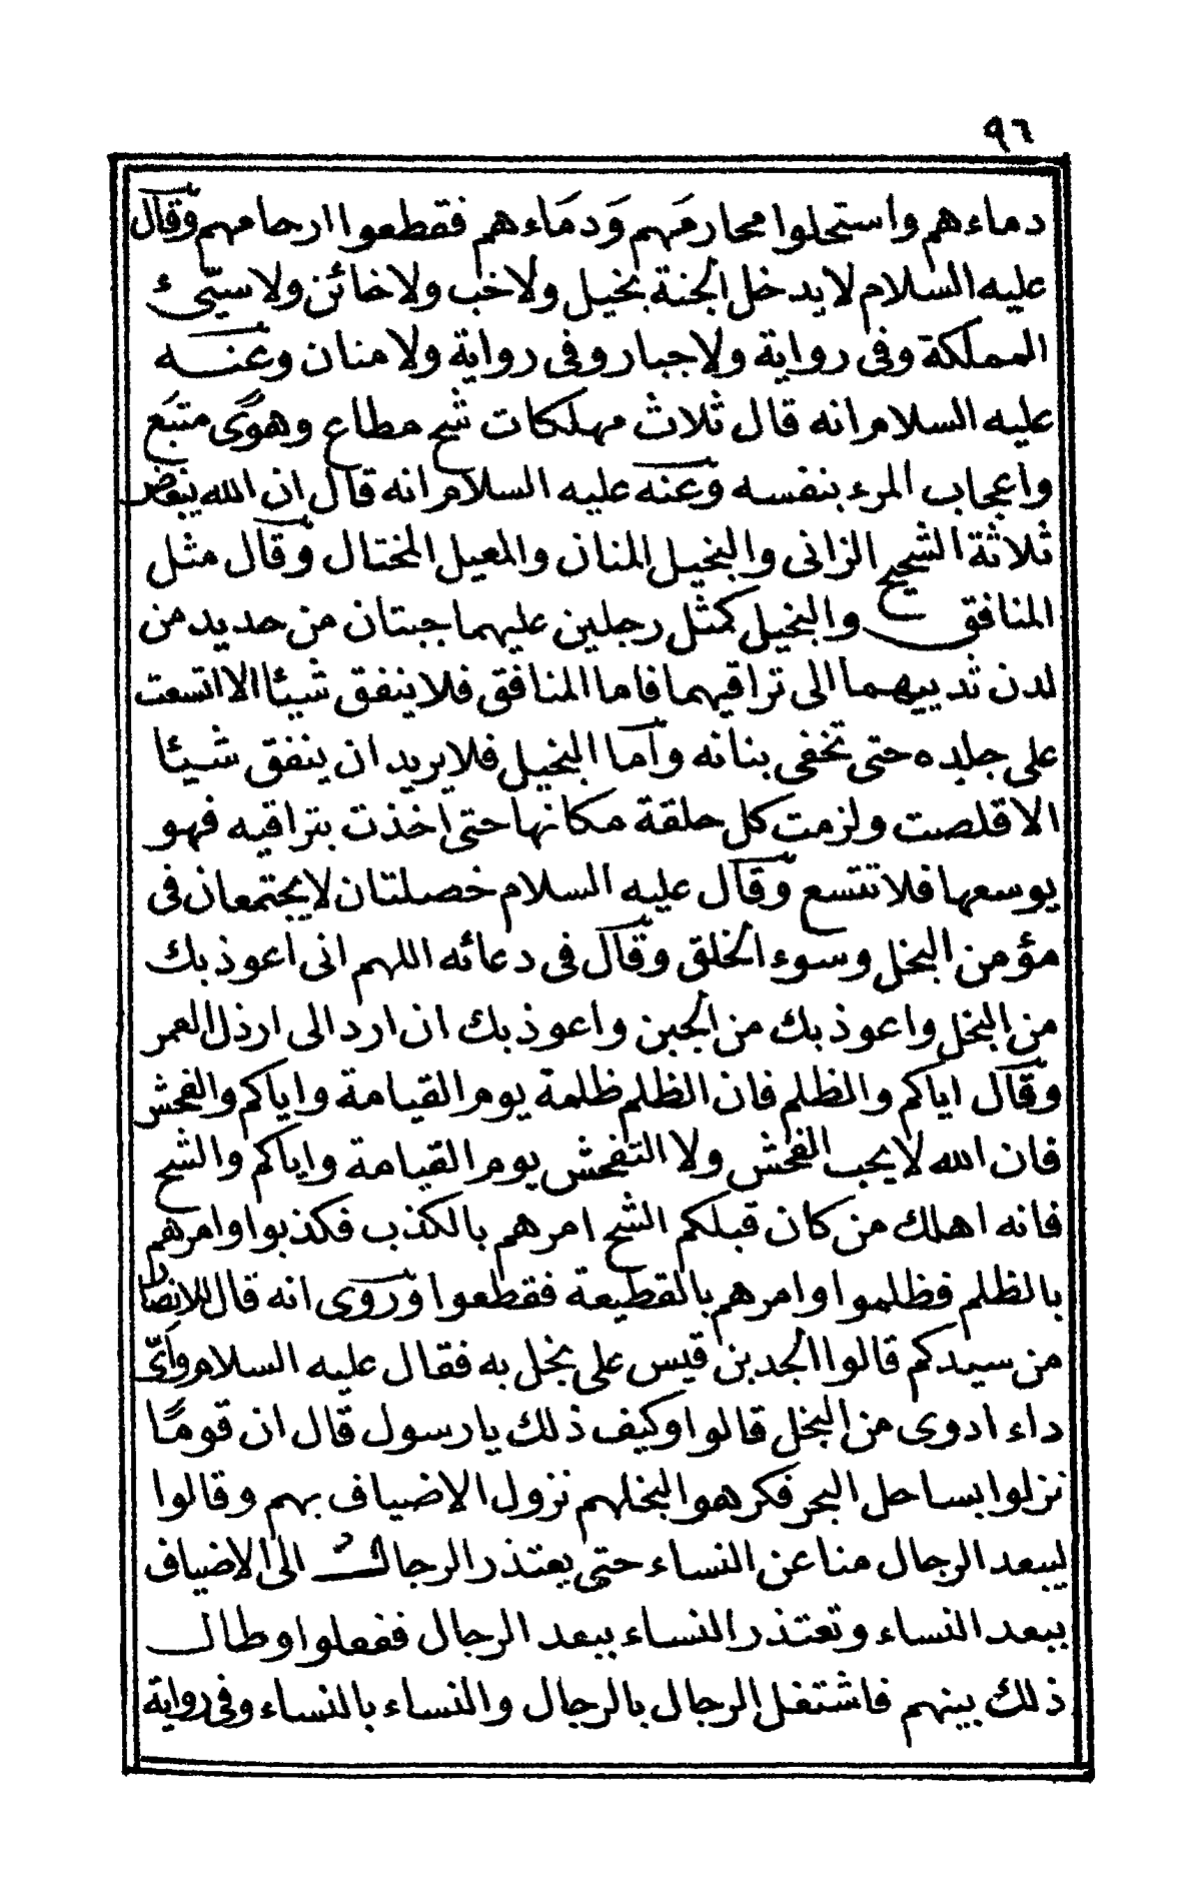 ٩٦
دماءهم واستحلوا محارمَهم وَدمَاءهم فقطعوا ارحامهم وقال
عليه السلام لا يدخل الجنة بخيل ولا خب ولا خائن ولا سيّئ
المملكة وفى رواية ولا جبار وفى رواية ولا منان وعنه
عليه السلام انه قال ثلاث مهلكات شح مطاع وهوًى متبَع
واعجاب المرء بنفسه وعنه عليه السلام انه قال ان الله يبغض
ثلاثة الشحيح الزانى والبخيل المنان والمعيل المختال وقال مثل
المنافق والبخيل كمثل رجلين عليهما جبتان من حديد من
لدن ثدييهما الى تراقيهما فاما المنافق فلا ينفق شيئا الا اتسعت
على جلده حتى تخفى بنانه وأما البخيل فلا يريد ان ينفق شيئا
الا قلصت ولزمت كل حلقة مكانها حتى اخذت بتراقيه فهو
يوسعها فلا تتسع وقال عليه السلام خصلتان لا يجتمعان فى
مؤمن البخل وسوء الخلق وقال فى دعائه اللهم انى اعوذ بك
من البخل واعوذ بك من الجبن واعوذ بك ان ارد الى ارذل العمر
وقال اياكم والظلم فان الظلم ظلمة يوم القيامة واياكم والفحش
فان الله لا يحب الفحش ولا التفحش يوم القيامة واياكم والشح
فانه اهلك من كان قبلكم الشح امرهم بالكذب فكذبوا وامرهم
بالظلم فظلموا وامرهم بالقطيعة فقطعوا وروى انه قال للانصار
من سيدكم قالوا الجد بن قيس على بخل به فقال عليه السلام وأىّ
داء ادوى من البخل قالوا وكيف ذلك يا رسول قال ان قومًا
نزلوا بساحل البحر فكرهوا لبخلهم نزول الاضياف بهم وقالوا
ليبعد الرجال منا عن النساء حتى يعتذر الرجال الى الاضياف
ببعد النساء وتعتذر النساء ببعد الرجال ففعلوا وطال
ذلك بينهم فاشتغل الرجال بالرجال والنساء بالنساء وفى رواية